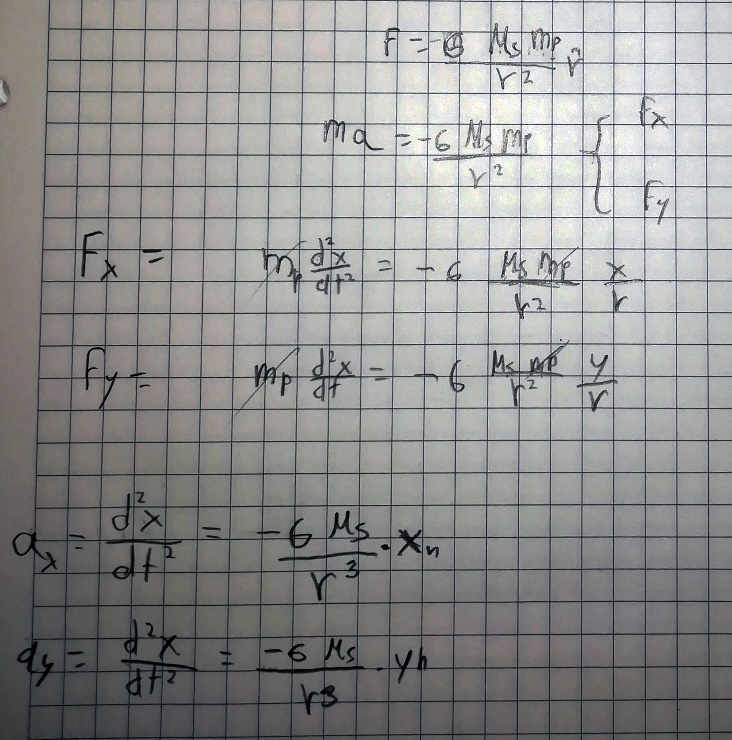 F = -G Ms mp / r² r̂
ma = -G Ms mp / r² { Fx
Fy
Fx = mp d²x/dt² = -G Ms mp / r² x/r
Fy = mp d²x/dt = -G Ms mp / r² y/r
ax = d²x/dt² = -G Ms / r³ · xn
ay = d²x/dt² = -G Ms / r³ · yn